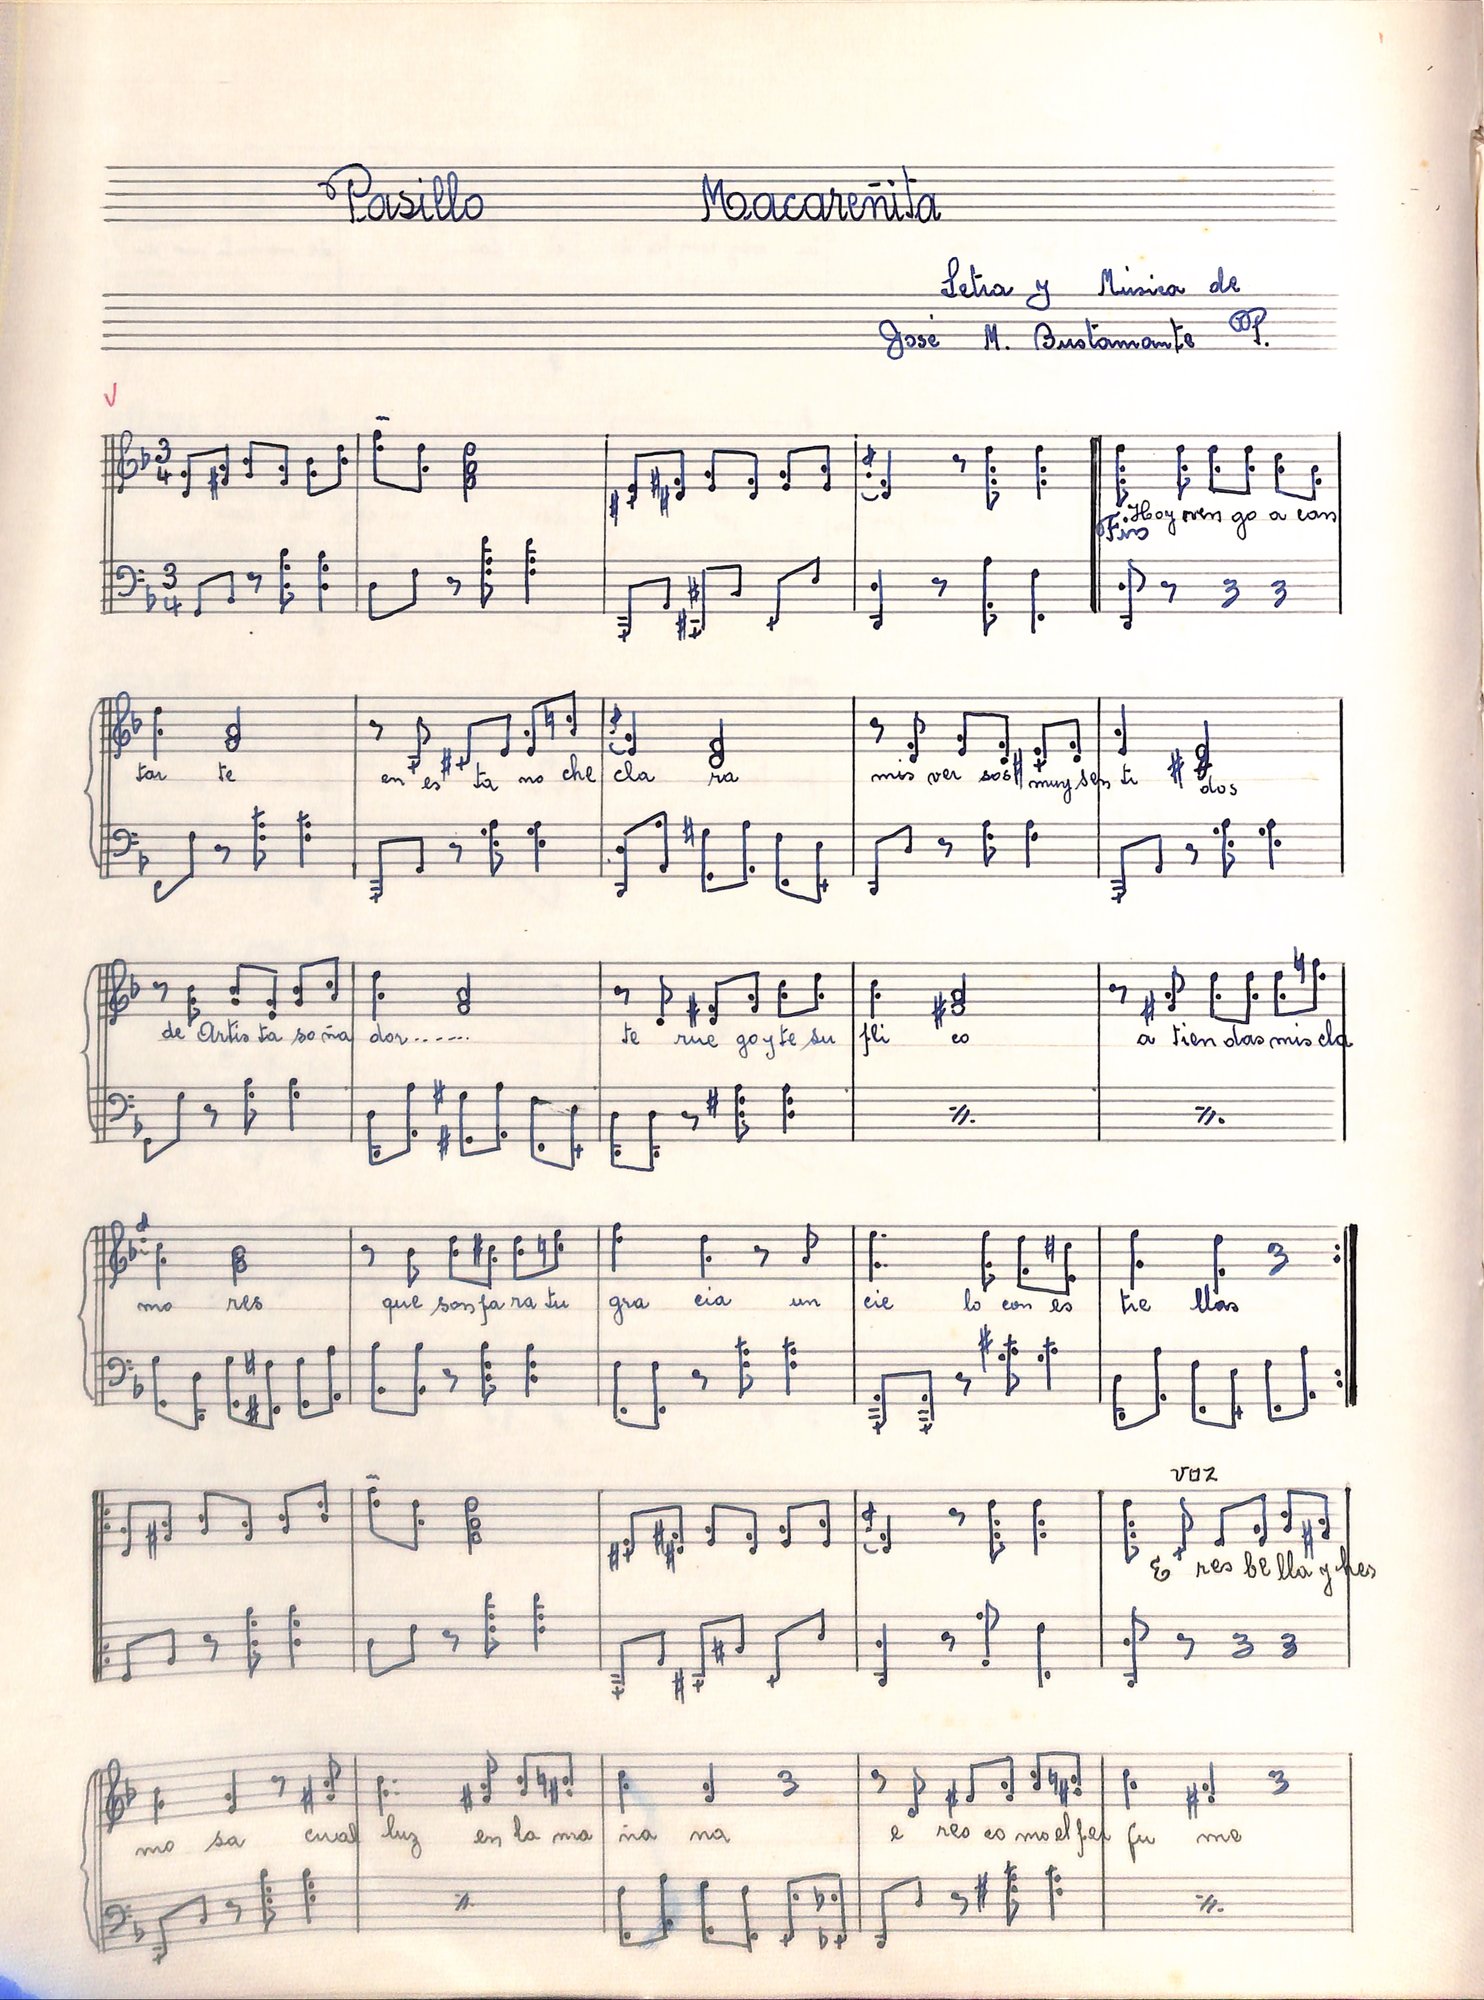 Pasillo Macareñita
Letra y Música de
José M. Bustamante P.
3 4
Hoy ven go a can
Fin
3 4
tar te en es ta no che cla ra mis ver sos muy sen ti dos
de Artis ta so ña dor...... te rue go y te su pli co a tien das mis cla
mo res que son pa ra tu gra cia un cie lo con es tre llas
voz
E res be lla y her
mo sa cual luz en la ma ña na e res co mo el per fu me